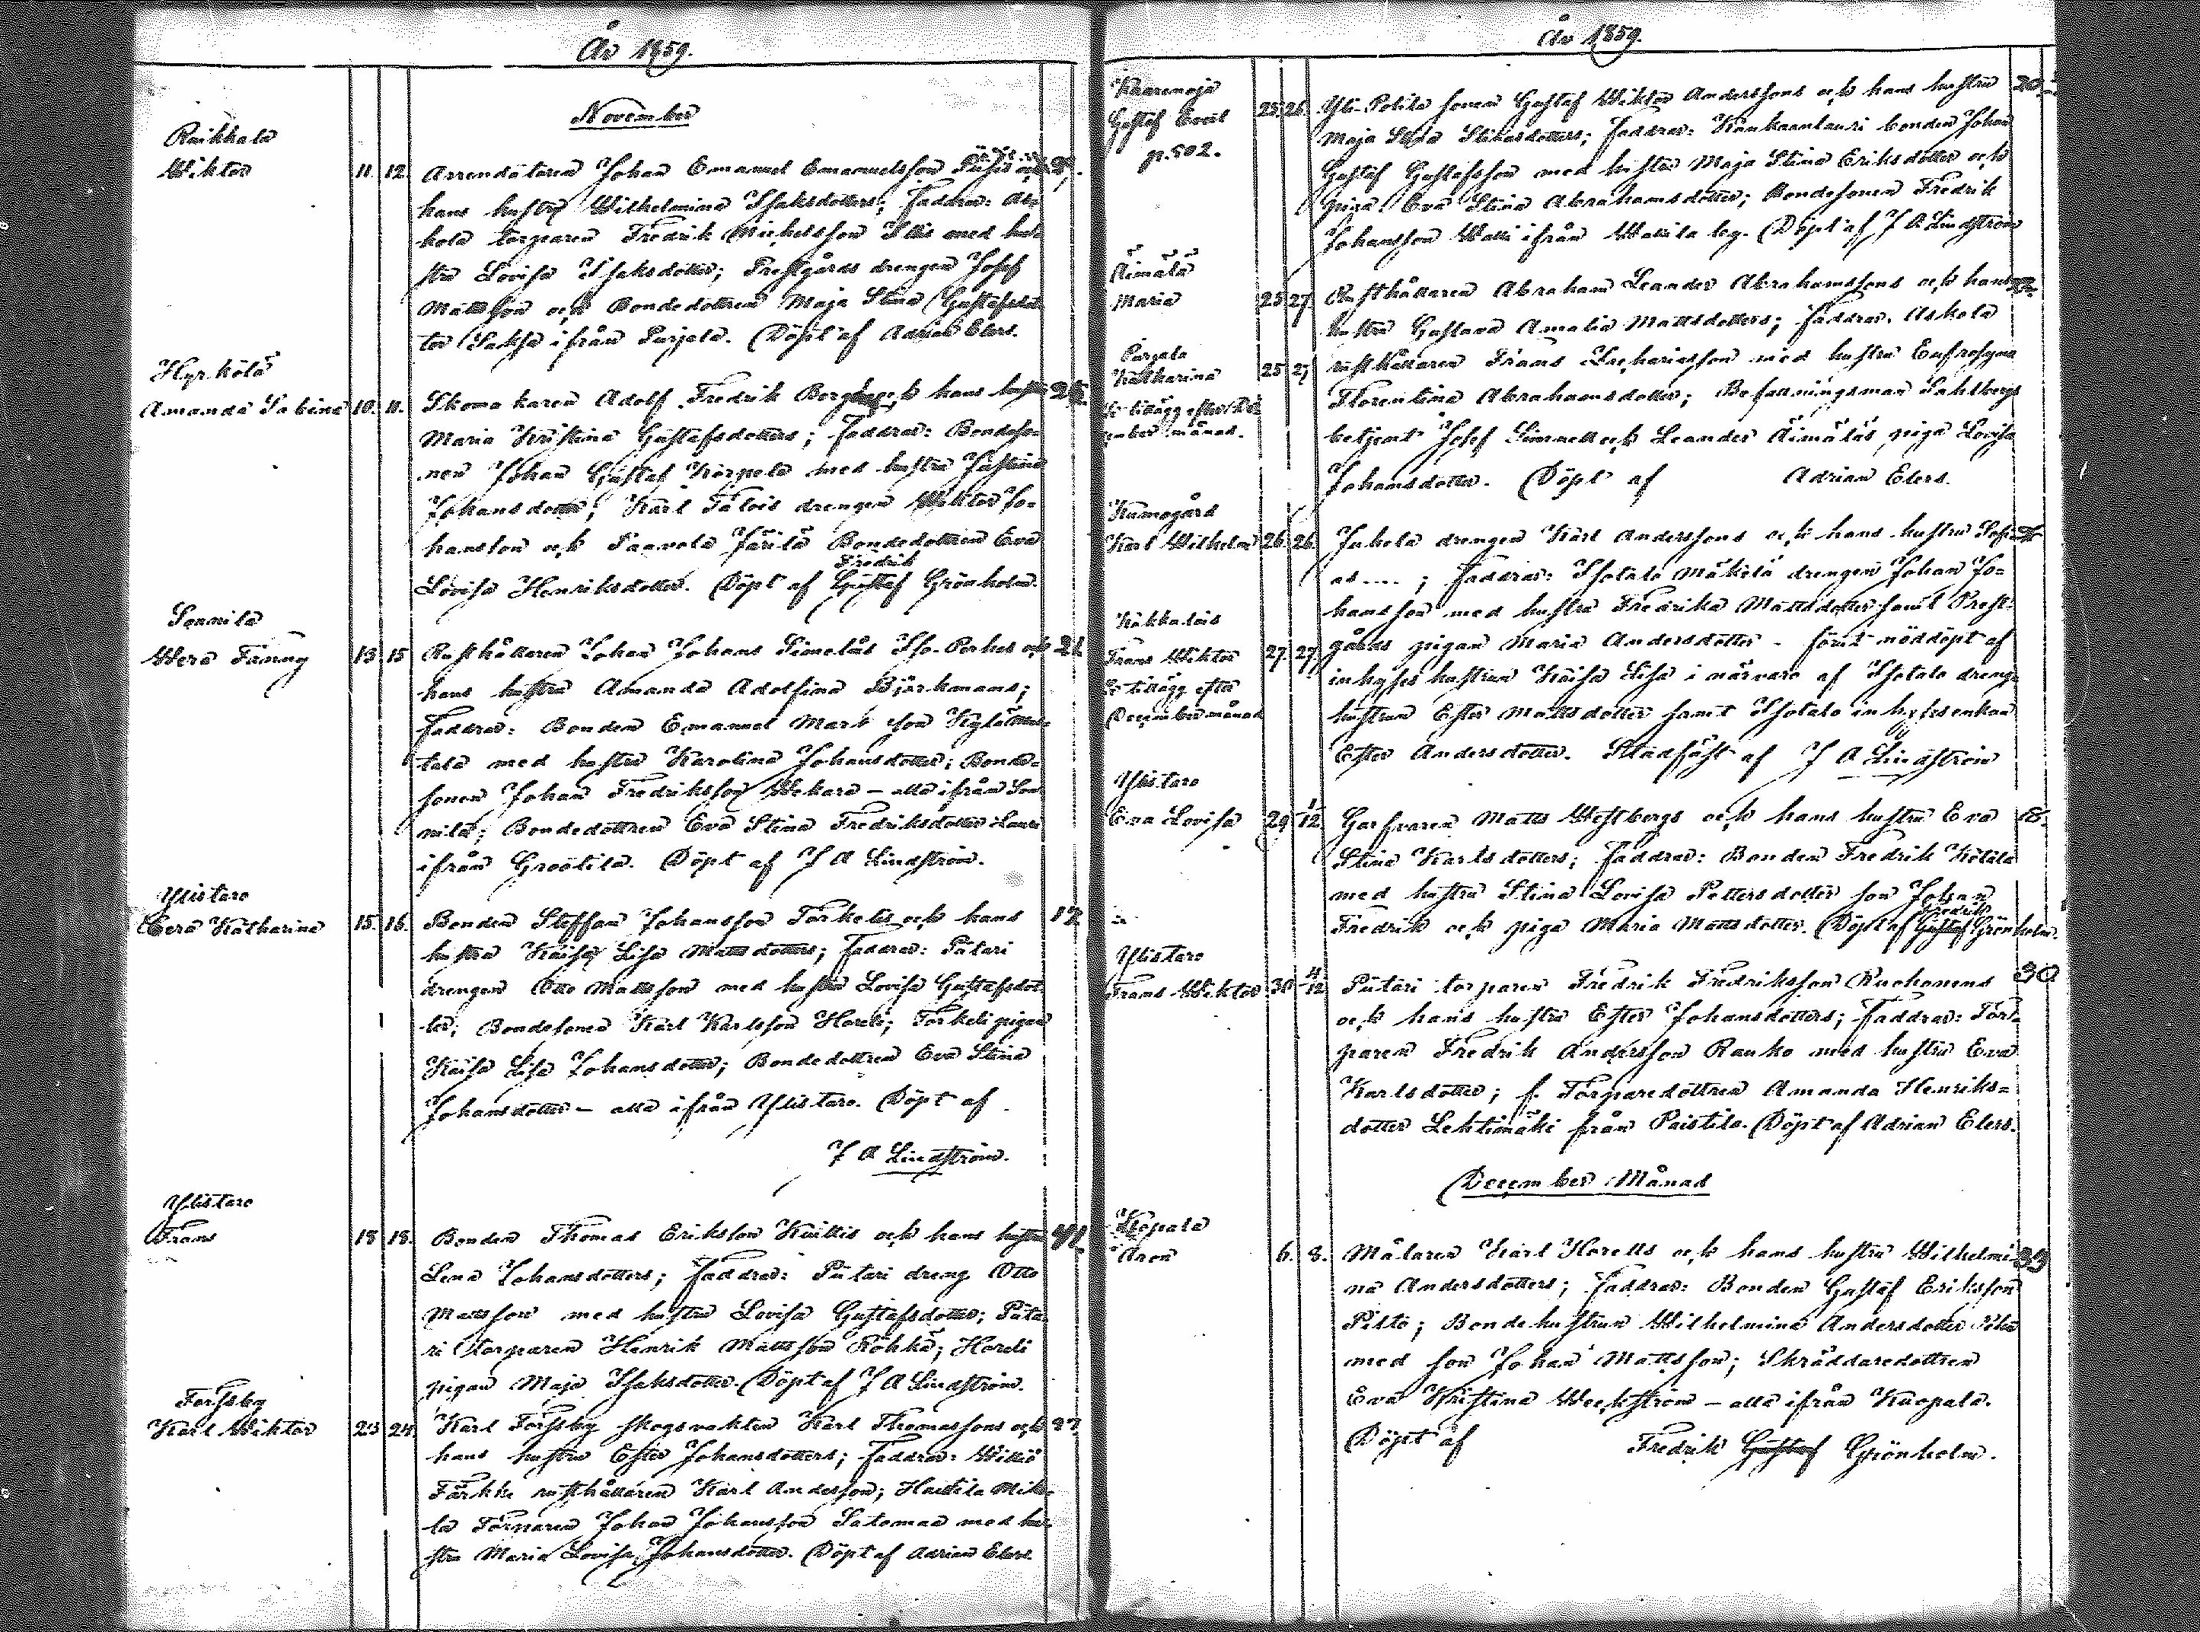 År 1859.
November
Raikkala
Wiktor 11. 12. Arrendatoren Johan Emanuel Emanuelsson och
hans hustru Wilhelmina Isaksdotters; Faddrar:
kola torparen Fredrik Michelsson Illis med hu-
stru Lovisa Isaksdotter; Prestgårds drengen Josef
Mattsson och Bondedottren Maja Stina Gustafsdot-
ter Saksa ifrån Parjela. Döpt af Adrian Elers.
Hyrkölä
Amanda Sabina 10. 11. Skomakaren Adolf Fredrik Bergs och hans hustru
Maria Kristina Gustafsdotters; Faddrar: Bondeso-
nen Johan Gustaf Korpela med hustru Justina
Johansdotter; Karl Talois drengen Wiktor Jo-
hansson och Paavola Järilä Bondedottren Eva
Fredrik
Lovisa Henriksdotter. Döpt af Gustaf Grönholm.
Sonnila
Wera Fanny 13 15 Rusthållaren Johan Johans Simelas Iso-Perhes och 21
hans hustru Amanda Adolfina Björkmans;
Faddrar: Bonden Emanuel Markson Kylä
tala med hustru Karolina Johansdotter; Bonde-
sonen Johan Fredriksson Wekara – alla ifrån Son
nila; Bondedottren Eva Stina Fredriksdotter Lauri
ifrån Grootila. Döpt af J A Lindström.
Ylistaro
Eva Katharina 15. 16. Bonden Steffan Johansson Torkelis och hans 17
hustru Kaisa Lisa Mattsdotters; Faddrar: Putari
drengen Otto Mattsson med hustru Lovisa Gustafsdot-
ter; Bondesonen Karl Karlsson Horeli; Torkeli pigan
Kaisa Lisa Johansdotter; Bondedottren Eva Stina
Johansdotter – alla ifrån Ylistaro. Döpt af
J A Lindström.
Ylistaro
Frans 18 18. Bonden Thomas Eriksson Knillis och hans hustru 41
Lena Johansdotters; Faddrar: Putari dreng Otto
Mattsson med hustru Lovisa Gustafsdotter; Puta-
ri torparen Henrik Mattsson Röhkä; Horeli
pigan Maja Isaksdotter. Döpt af J A Lindström.
Forssby
Karl Wiktor 23 24. Karl Forssby skogsvakten Karl Thomassons och 27
hans hustru Ester Johansdotters; Faddrar:
Färkki rusthållaren Karl Andersson; Haitila Mik-
la Torparen Johan Johansson Satomaa med hu-
stru Maria Lovisa Johansdotter. Döpt af Adrian Elers.
År 1859.
Kaaremoja
Gustaf Evert 25. 26. Yli-Polita sonen Gustaf Wiktor Anderssons och hans hustru
p. 502. Maja Stina Stikasdotters; Faddrar: Kankaanlauri bonden Johan
Gustaf Gustafsson med hustru Maja Stina Eriksdotter och
piga Eva Stina Abrahamsdotter; Bondesonen Fredrik
Johansson Walli ifrån Wallila by. Döpt af J A Lindström
Äimälä
Maria 25 27. Rusthållaren Abraham Leander Abrahamssons och hans
hustru Gustava Amalia Mattsdotters; Faddrar: Askola
Parjala
Katharina 25 27 rusthållaren Frans Zachariasson med hustru Eufrosyna
Se tillägg efter De-
cember månad.
Florentina Abrahamsdotter; Befallningsman Sahlbergs
betjent Josef Simnell och Leander Äimäläs piga Lovisa
Johansdotter. Döpt af Adrian Elers.
Kumogård
Karl Wilhelm 26. 26. Jakola drengen Karl Anderssons och hans hustru Sofi-
as .... ; Faddrar: Isotalo Mäkelä drengen Johan Jo-
hansson med hustru Fredrika Mattsdotter samt Prest-
Kakkalais
Frans Wiktor 27. 27. gårds pigan Maria Andersdotter – förut nöddöpt af
Se tillägg efter
December månad
inhyses hustrun Kaisa Lisa i närvaro af Isotalo dreng-
hustrun Ester Mattsdotter samt Isotalo inhysesenkan
Ester Andersdotter. Stadfäst af J A Lindström
Ylistaro
Eva Lovisa 29 1/12 Garfvaren Matts Westbergs och hans hustru Eva
Stina Karlsdotters; Faddrar: Bonden Fredrik Kötilä
med hustru Stina Lovisa Pettersdotter son Johan
Fredrik
Fredrik och piga Maria Mattsdotter. Döpt af Gustaf Grönholm.
Ylistaro
Frans Wiktor 30 4/12 Putari torparen Fredrik Fredriksson Ruohonens 30
och hans hustru Ester Johansdotters; Faddrar: Tor-
paren Fredrik Andersson Ranko med hustru Eva
Karlsdotter; f. Torparedottren Amanda Henriks-
dotter Lehtimäki från Paistila. Döpt af Adrian Elers.
December Månad
Kuopala
Aron 6. 8. Målaren Karl Horells och hans hustru Wilhelmi- 33
na Andersdotters; Faddrar: Bonden Gustaf Eriksson
Pilto; Bondehustrun Wilhelmina Andersdotter
med son Johan Mattsson; Skräddaredottren
Eva Kristina Weckström – alla ifrån Kuopala.
Döpt af Fredrik Gustaf Grönholm.